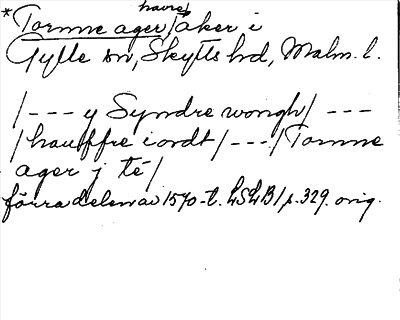 havre
*Tornne ager/åker i
Gylle sn, Skytts hd, Malm. l.
/--- y Syndre wongh/ ---
/hauffre iordt/ ---/Tornne
ager j te/
förra delen av 1570-t. LSLB/p. 329. orig.